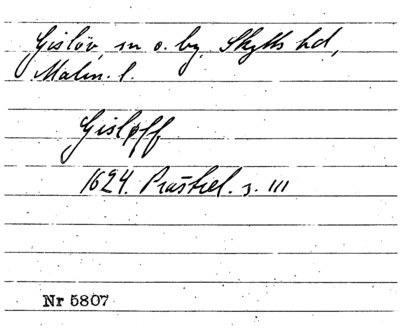 Gislöv, sn o. by, Skytts hd,
Malm. l.
Gisløff
1624. Prästrel. s. 111
Nr 5807